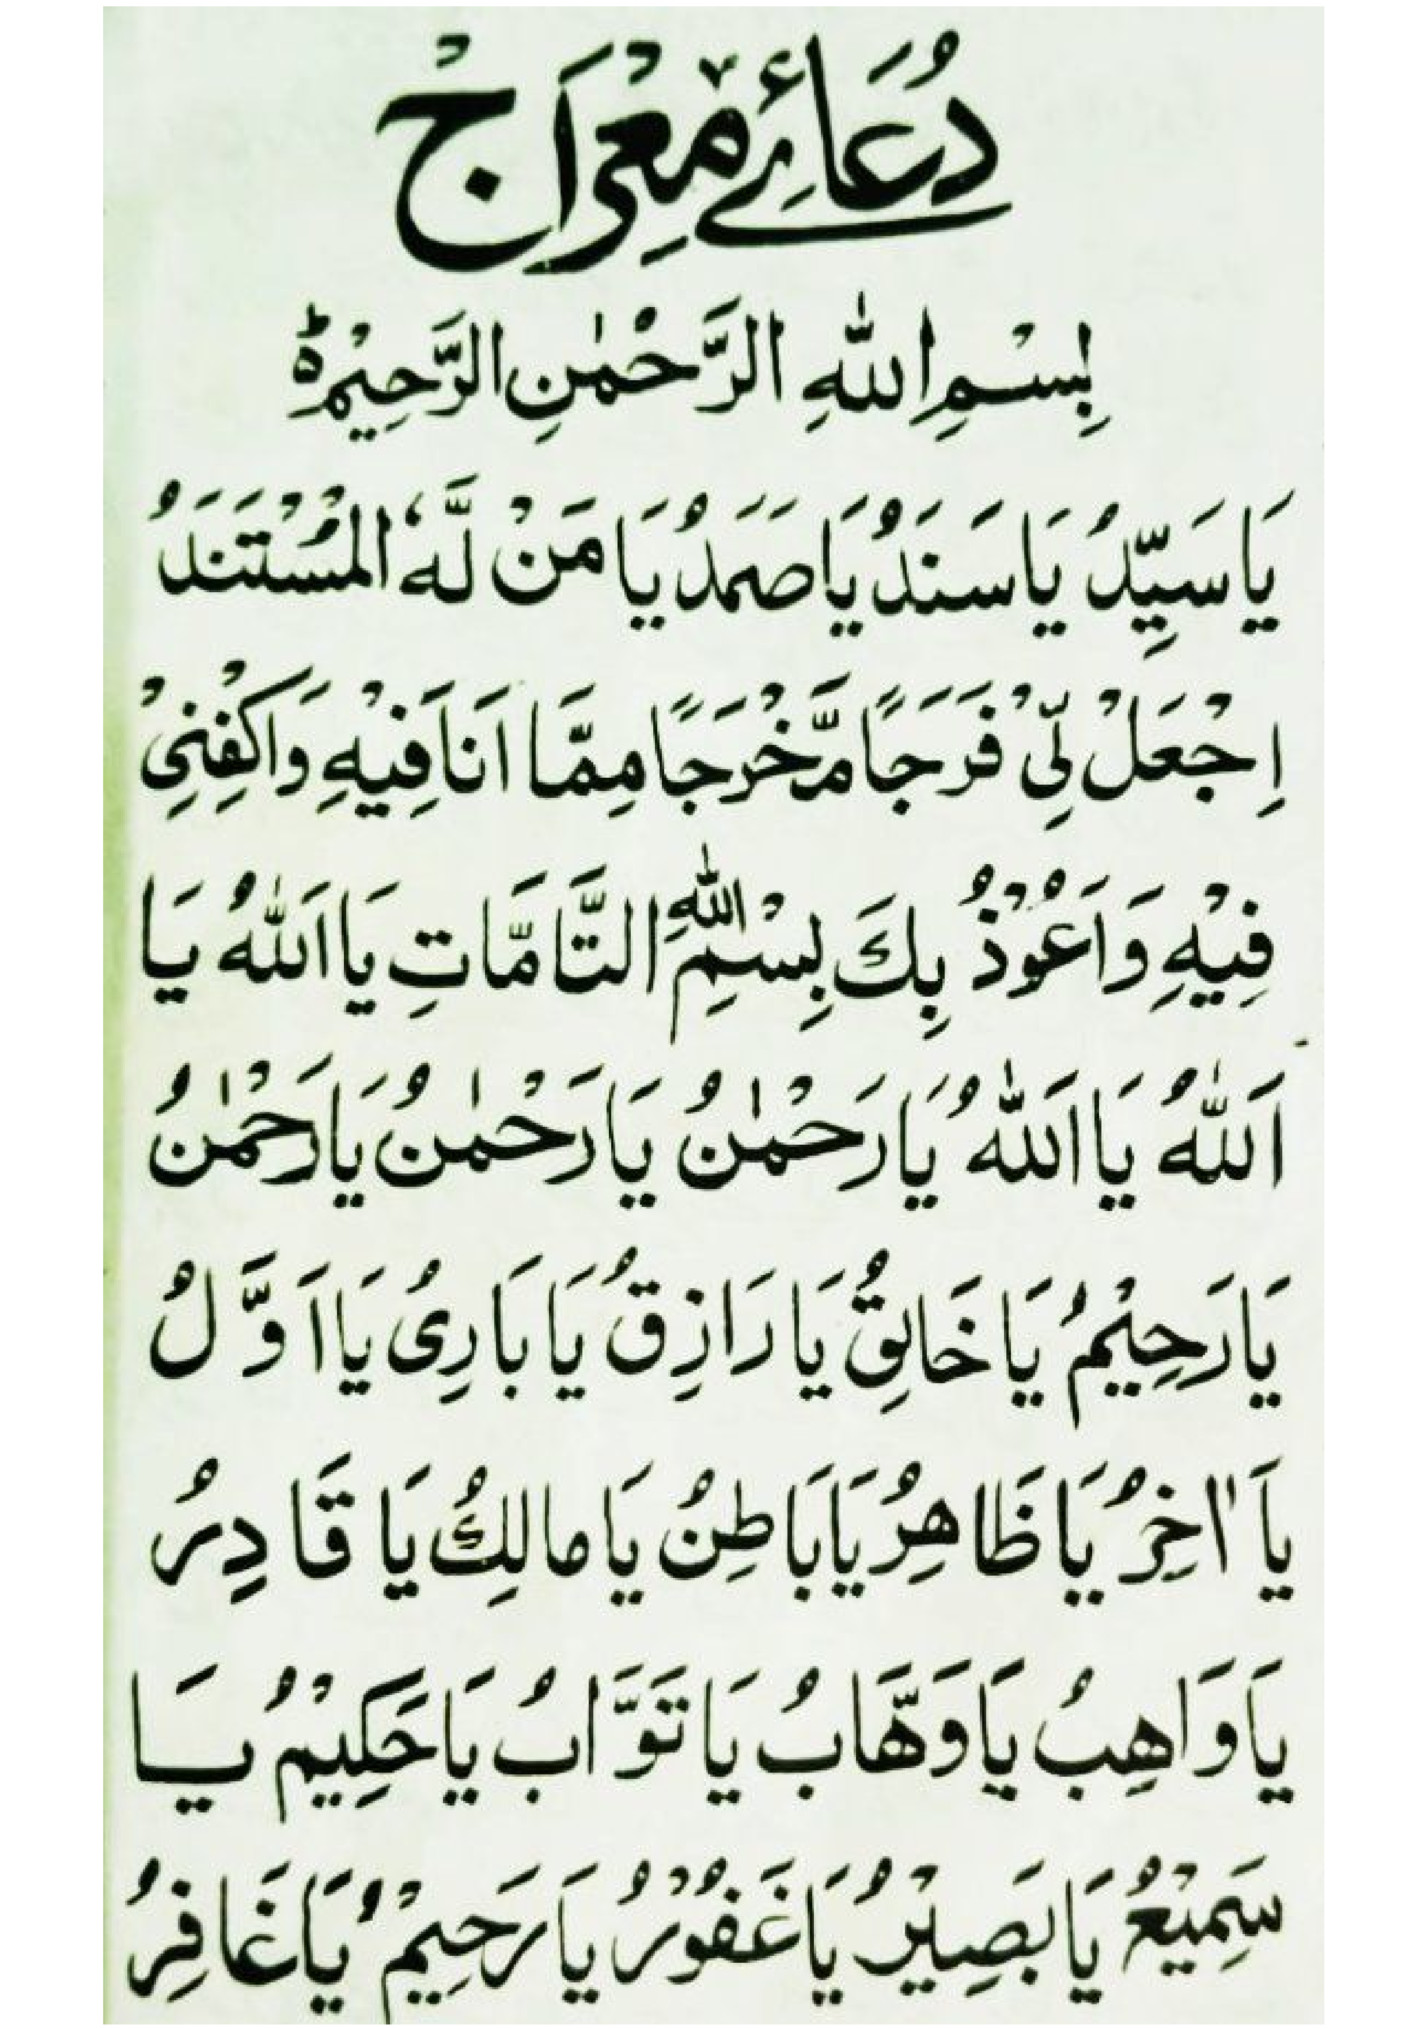 دُعَائے مِعْرَاجْ
بِسْمِ اللّٰهِ الرَّحْمٰنِ الرَّحِيْمِ ؕ
يَا سَيِّدُ يَا سَنَدُ يَا صَمَدُ يَا مَنْ لَّهٗ الْمُسْتَنَدُ
اِجْعَلْ لِّيْ فَرَجًا مَّخْرَجًا مِمَّا اَنَا فِيْهِ وَاكْفِنِيْ
فِيْهِ وَاَعُوْذُ بِكَ بِسْمِ اللّٰهِ التَّامَّاتِ يَا اَللّٰهُ يَا
اَللّٰهُ يَا اَللّٰهُ يَا رَحْمٰنُ يَا رَحْمٰنُ يَا رَحْمٰنُ
يَا رَحِيْمُ يَا خَالِقُ يَا رَازِقُ يَا بَارِئُ يَا اَوَّلُ
يَا اٰخِرُ يَا ظَاهِرُ يَا بَاطِنُ يَا مَالِكُ يَا قَادِرُ
يَا وَاهِبُ يَا وَهَّابُ يَا تَوَّابُ يَا حَكِيْمُ يَا
سَمِيْعُ يَا بَصِيْرُ يَا غَفُوْرُ يَا رَحِيْمُ يَا غَافِرُ